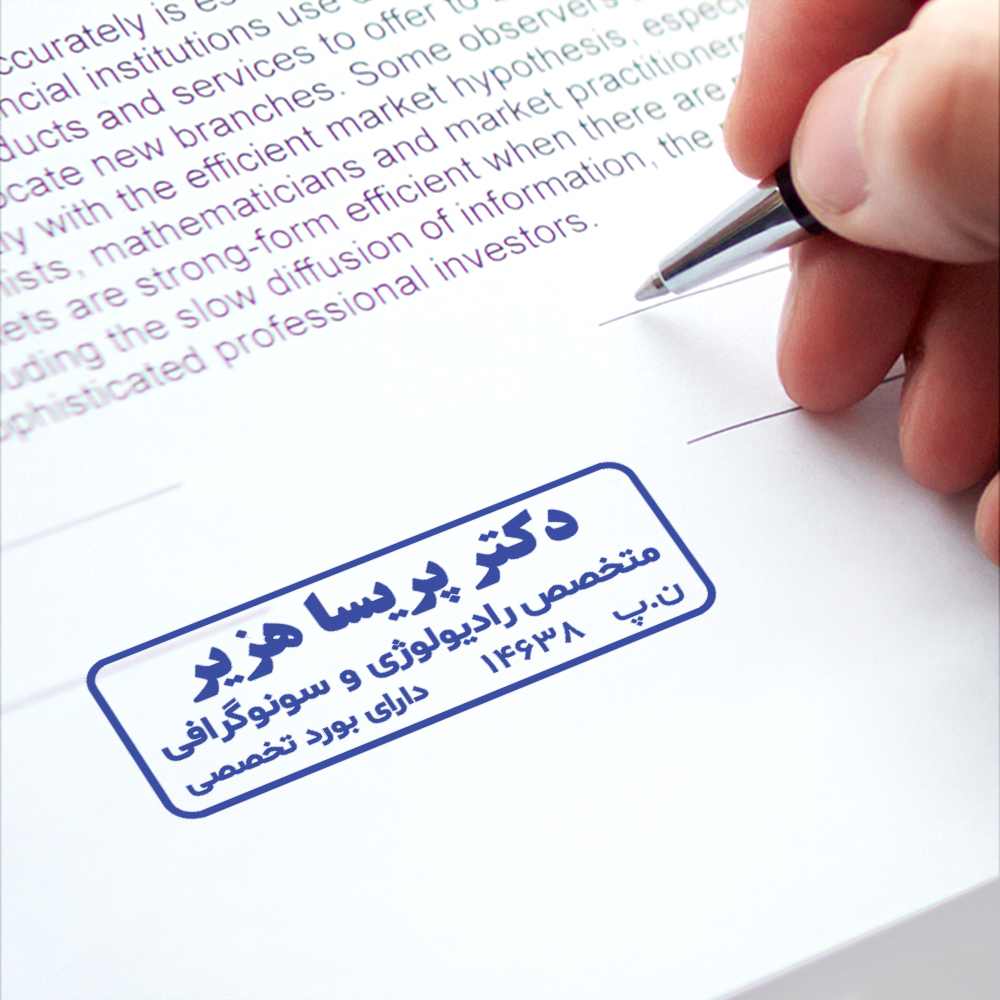 ccurately is es
ncial institutions use
ducts and services to offer to
ocate new branches. Some observers
ly with the efficient market hypothesis, especi
ists, mathematicians and market practitioners
ets are strong-form efficient when there are
uding the slow diffusion of information, the
ophisticated professional investors.
دکتر پریسا هزیر
متخصص رادیولوژی و سونوگرافی
ن.پ ۱۴۶۳۸ دارای بورد تخصصی